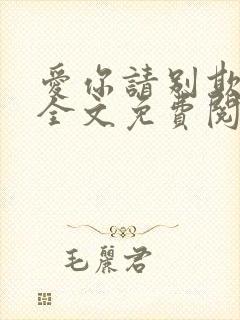 愛你請別欺
全文免費閱
毛麗君